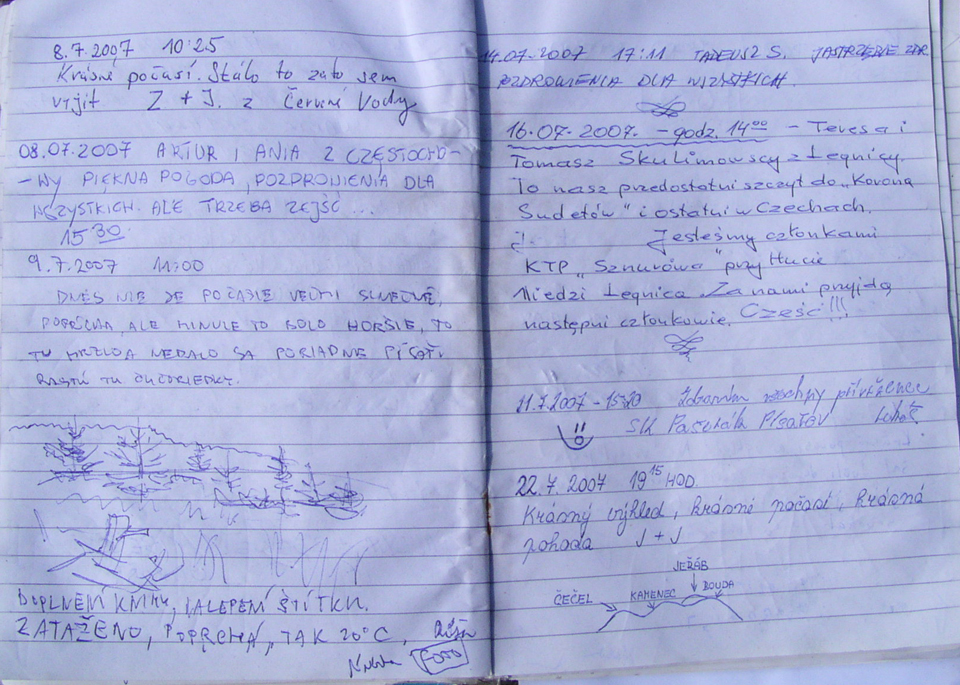 8.7.2007 10:25
Krásné počasí. Stálo to zato sem
vyjít Z + J. z Červené Vody
08.07.2007 ARTUR I ANIA Z CZĘSTOCHO-
-WY PIĘKNA POGODA, POZDROWIENIA DLA
WSZYSTKICH. ALE TRZEBA ZEJŚĆ ...
15 30
9.7.2007 11:00
DNES NIE JE POČASIE VEĽMI SLNEČNÉ,
POPŔCHA, ALE MINULE TO BOLO HORŠIE, TO
TU MRZLO A NEDALO SA PORIADNE PÍSAŤ.
RASTÚ TU ČUČORIEDKY.
DOPLNĚNÍ KNIHY, NALEPENÍ ŠTÍTKU.
ZATAŽENO, POPRCHÁ, TAK 20°C,
FOTO
14.07.2007 17:11 TADEUSZ S. JASTRZĘBIE ZDR.
POZDROWIENIA DLA WSZYSTKICH.
16.07.2007. - godz. 14 00 - Teresa i
Tomasz Skulimowscy z Legnicy.
To nasz przedostatni szczyt do „Korona
Sudetów" i ostatni w Czechach.
Jesteśmy członkami
KTP „Sznurówa" przy Hucie
Miedzi Legnica. Za nami przyjdą
następni członkowie. Cześć!!!
21.7.2007 - 15:20 přívrženec
SK Lukáš
22.7.2007 19 15 HOD.
Krásný výhled, krásné počasí, krásná
pohoda J + J
JEŘÁB
ČEČEL KAMENEC BOUDA